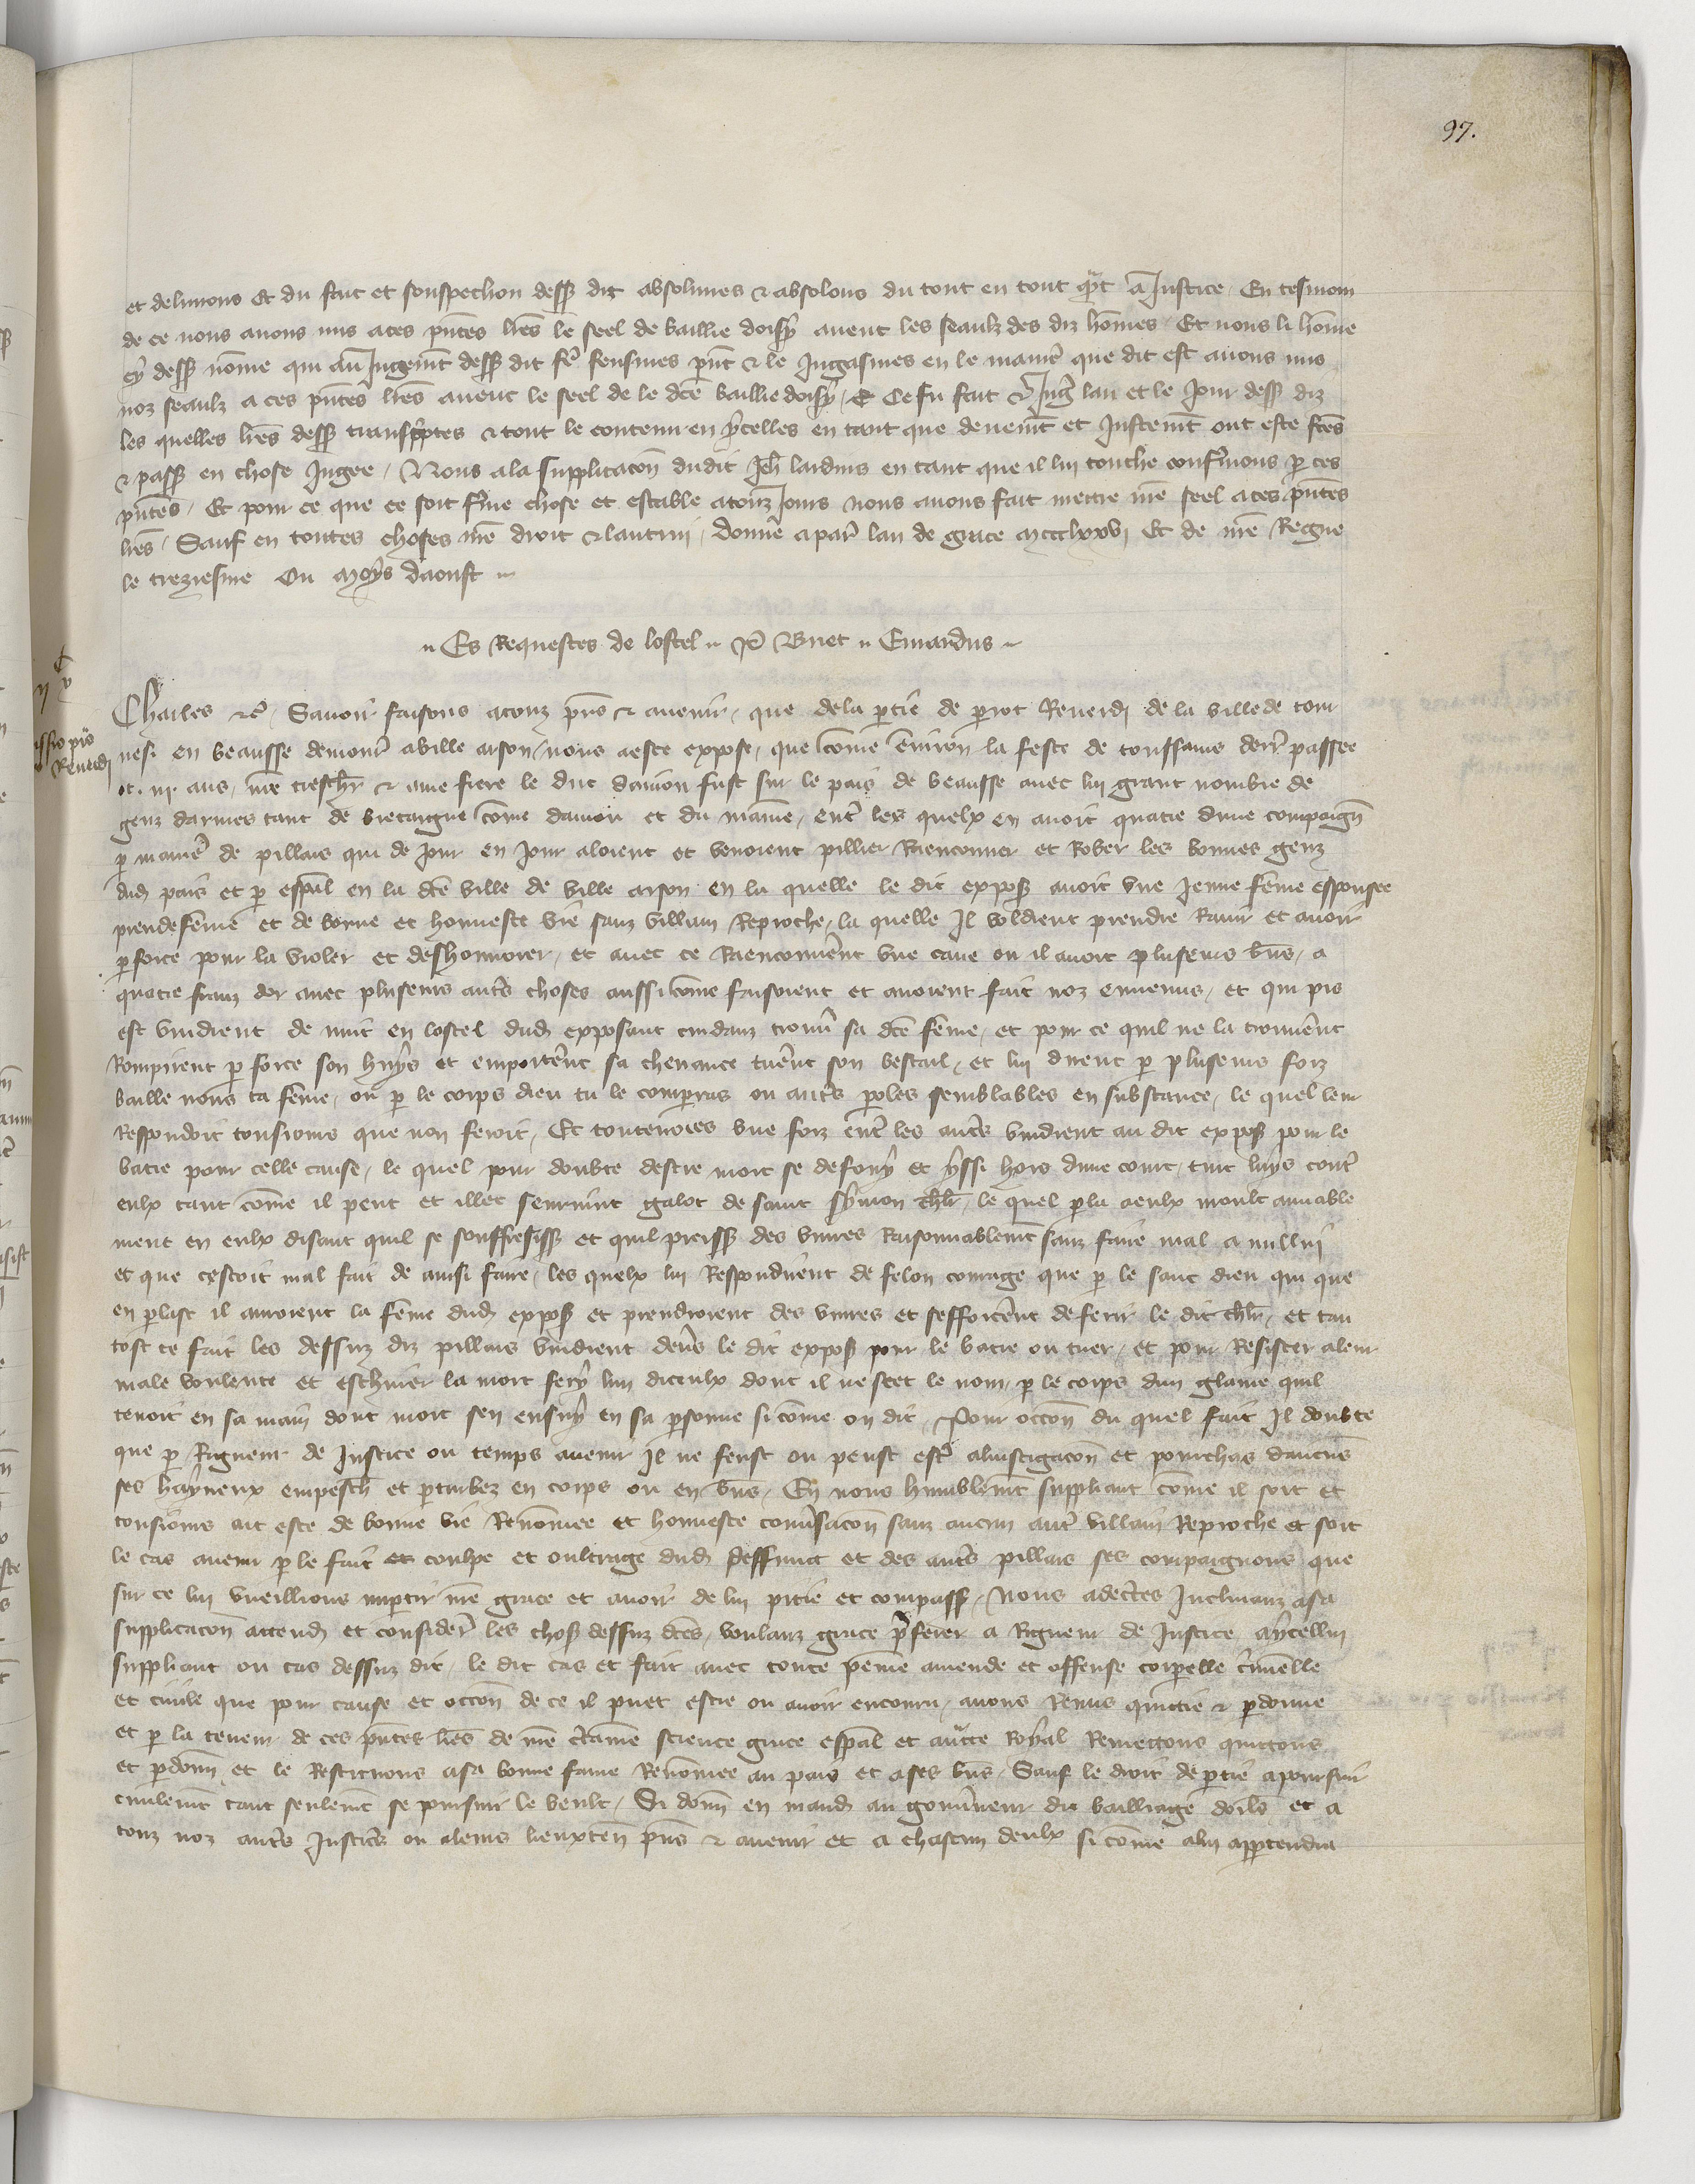 97.
et delivrons et du fait et souspechon dess dit absolvimes & absolons du tout en tout qt a Justice. En tesmoin
de ce nous avons mis a ces pntes lres le seel de baillie doisy avenc les seaulz des diz homes. Et nous li home
cy dess nome qui au Jugemt dess dit fe fensmes pnt & le Jugasmes en le manier que dit est avons mis
noz seaulz a ces pntes lres avenc le seel de le dce baillie doisy. Et ce fu fait & Jug lan et le Jour dess diz
les quelles lres dess transcptes & tout le contenu en ycelles en tant que deuemt et Justemt ont este fces
& pass en chose Jugee. Nous a la supplicacon dudit Jeh lardins en tant que il lui touche confmons p ces
pntes. Et pour ce que ce soit fme chose et estable a touz Jours nous avons fait mettre nre seel a ces pntes
lres. Sauf en toutes choses nre droit & lautrui. Donne a par lan de grace mccclxxvi Et de nre Regne
le treziesme Ou moys daoust
Es Requestes de lostel P Buet Emardus
Charles &c Savoir faisons a touz pns & avenir, que de la ptie de prot Reverdi de la ville de tour
nesi en beausse demour a ville arson nous a este expose, que come environ la feste de toussains derr passee
ot. iii. ans, nre treschr & ame frere le duc danjou fust sur le pais de beausse avec lui grant nombre de
genz darmes tant de bretaigne come danjou et du maine, entr les quelx en avoit quatre dune compaign
p manier de pillars qui de jour en jour aloient et venoient pillier Raenconner et Rober les bonnes genz
dud pais et p espal en la dce ville de ville arson en la quelle le dit expos avoit une jenne feme espousee
preudefeme et de bonne et honneste vie sanz villain Reproche, la quelle Il voldient prendre Ravir et avoir
p force pour la violer et deshonnorer, et avec ce Raenconnerent une cave ou il avoit pluseurs bns, a
quatre franz dor avec pluseurs auts choses aussi come faisoient et avoient fait noz ennemis, et qui pis
est vindrent de nuit en lostel dud exposant cuidanz trouv sa dce feme, et pour ce quil ne la trouverent
Rompirent p force son huys et emporterent sa chevance tuerent son bestail, et lui dirent p pluseurs foiz
baille nous ta feme, ou p le corps dieu tu le compras ou auts proles semblables en substance, le quel leur
Respondoit tousjours que non feroit, Et toutevoies une foiz entr les auts vindrent au dit expos pour le
batre pour celle cause, le quel pour doubte destre mort se defouy et yssi hors dune court, tint luys contr
eulx tant come il peut et illec seurvint galot de saint symon chlr, le quel pla a eulx moult amiable
ment en eulx disant quil se souffresiss et quil preiss des vivres Raisonnablemt sanz faire mal a nullui
et que cestoit mal fait de ainsi faire, les quelx lui Respondirent de felon courage que p le sanc dieu qui que
en plast il auroient la feme dud expos et prendroient des vivres et sefforcerent de ferir le dit chlr, et tan
tost ce fait les dessuz diz pillars vindrent devs le dit expos pour le batre ou tuer, et pour Resister a leur
male voulente et eschiver la mort fery lun diceulx dont il ne scet le nom, p le corps dun glaive quil
tenoit en sa main dont mort sen ensuy en sa psonne si come on dit, Pour occon du quel fait Il doubte
que p Rigueur de Justice ou temps avenir Il ne feust ou peust estr a linstigacon et pourchas daucuns
ses hayneux empesch et pturbez en corps ou en bns, En nous humblemt suppliant come il soit et
tousjours ait este de bonne vie Renomee et honneste convsacon sanz aucun autr villain Reproche et soit
le cas avenu p le fait et coulpe et oultrage dud deffunct et des auts pillars ses compaignons que
sur ce lui vueillions imptir nre grace et avoir de lui pitie et compass, Nous adectes Inclinanz a sa
supplicacon attend et consider les chos dessuz dces, voulanz grace pferer a Rigueur de Justice a ycellui
suppliant ou cas dessuz dit, le dit cas et fait avec toute peine amende et offense corpelle crimelle
et civile que pour cause et occon de ce il puet estre ou avoir encouru, avons Remis quittie & pdonne
et p la teneur de ces pntes lres de nre ctaine science grace espal et aucte Royal Remettons quittons
et pdonn et le Restituons a sa bonne fame Renomee au pais et a ses bns. Sauf le droit de ptie a poursuir
civilemt tant seulemt se poursuir le veult, Si donn en mand au gouvneur du bailliage dorls et a
touz noz auts Justics ou a leurs lieuxten pns & avenir et a chascun deulx si come a lui apptendra